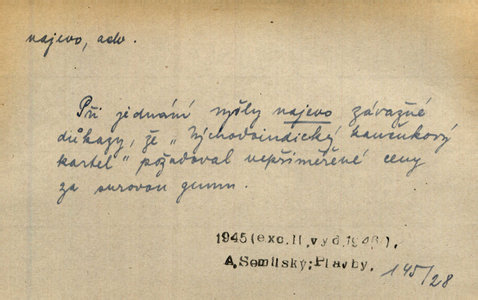 najevo, adv.
Při jednání vyšly najevo závažné
důkazy, že „Východoindický kaučukový
kartel“ požadoval nepřiměřené ceny
za surovou gumu.
1945(exc.II,vyd.1946),
A.Semilský:Plavby.
145/28